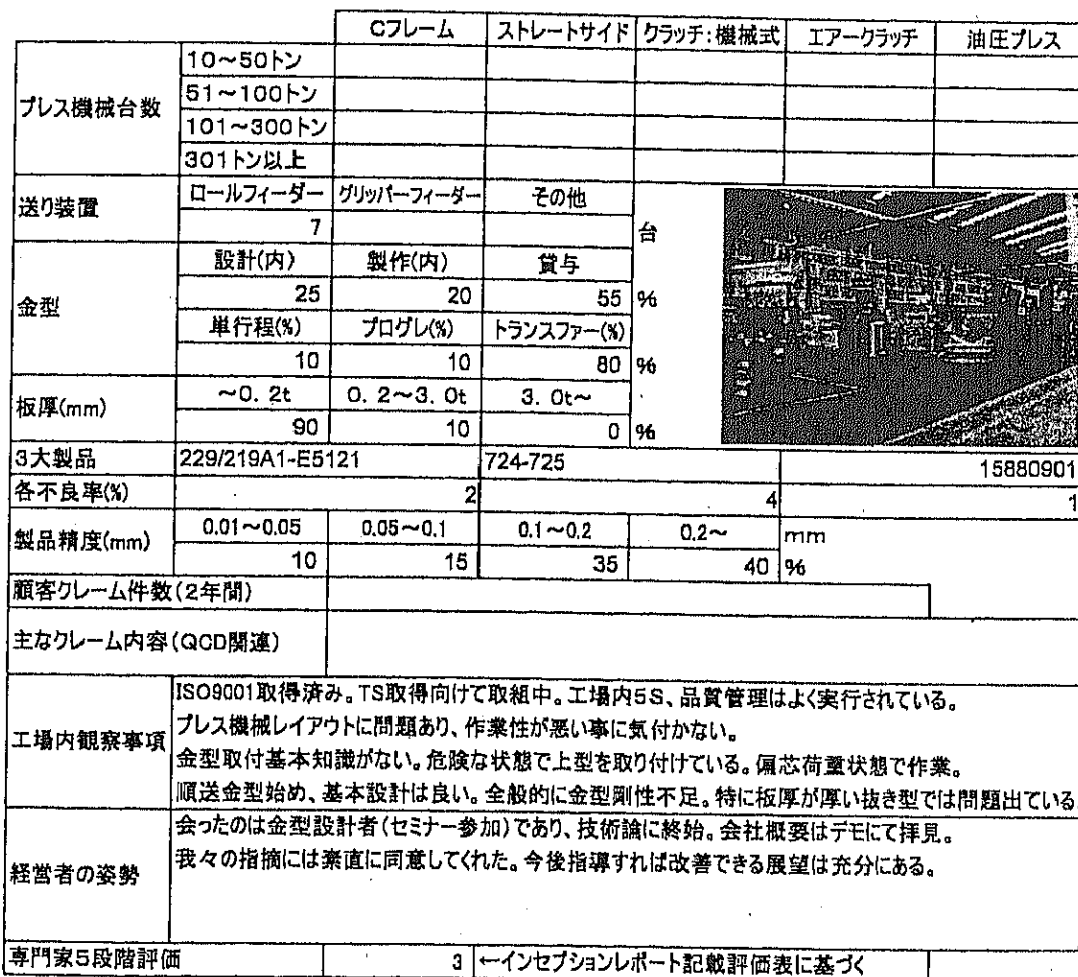 Cフレーム ストレートサイド クラッチ:機械式 エアークラッチ 油圧プレス
プレス機械台数
10～50トン
51～100トン
101～300トン
301トン以上
送り装置 ロールフィーダー グリッパーフィーダー その他
7 台
金型 設計(内) 製作(内) 貸与
25 20 55 %
単行程(%) プログレ(%) トランスファー(%)
10 10 80 %
板厚(mm) ～0. 2t 0. 2～3. 0t 3. 0t～
90 10 0 %
3大製品 229/219A1-E5121 724-725 15880901
各不良率(%) 2 4 1
製品精度(mm) 0.01～0.05 0.05～0.1 0.1～0.2 0.2～ mm
10 15 35 40 %
顧客クレーム件数(2年間)
主なクレーム内容(QCD関連)
工場内観察事項
ISO9001取得済み。TS取得向けて取組中。工場内5S、品質管理はよく実行されている。
プレス機械レイアウトに問題あり、作業性が悪い事に気付かない。
金型取付基本知識がない。危険な状態で上型を取り付けている。偏芯荷重状態で作業。
順送金型始め、基本設計は良い。全般的に金型剛性不足。特に板厚が厚い抜き型では問題出ている
経営者の姿勢
会ったのは金型設計者(セミナー参加)であり、技術論に終始。会社概要はデモにて拝見。
我々の指摘には素直に同意してくれた。今後指導すれば改善できる展望は充分にある。
専門家5段階評価 3 ←インセプションレポート記載評価表に基づく